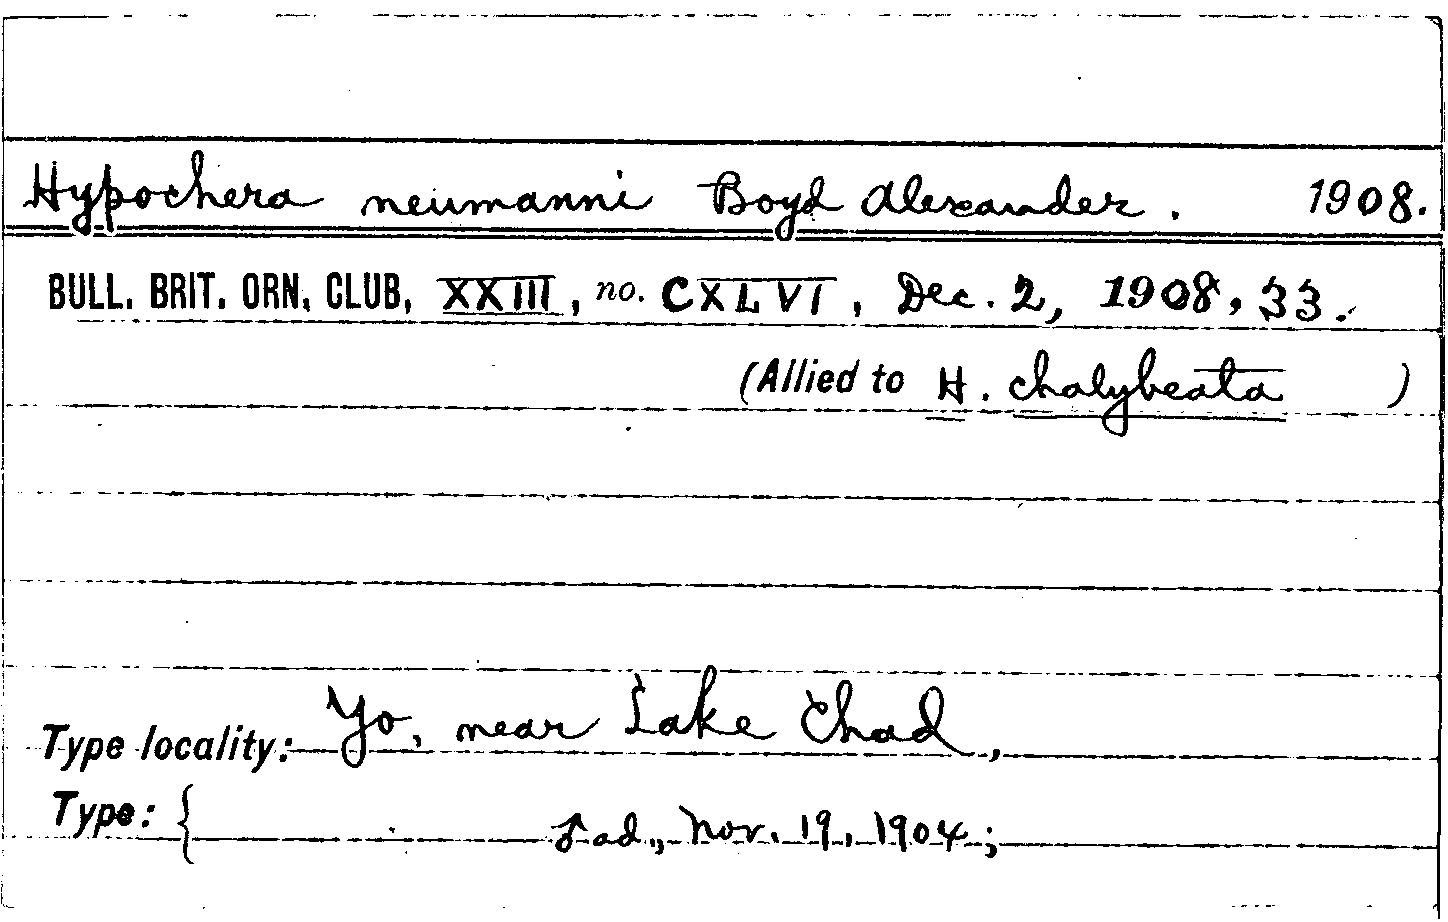 Hypochera neumanni Boyd Alexander. 1908.
BULL. BRIT. ORN. CLUB, XXIII, no. CXLVI, Dec. 2, 1908, 33.
(Allied to H. chalybeata )
Type locality: Yo, near Lake Chad,
Type: { ♂ ad., Nov. 19, 1904;